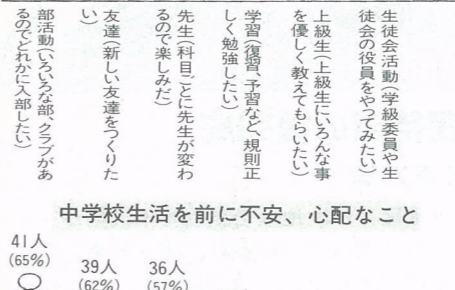 生徒会活動(学級委員や生
徒会の役員をやってみたい)
上級生(上級生にいろんな事
を優しく教えてもらいたい)
学習(復習、予習など、規則正
しく勉強したい)
先生(科目ごとに先生が変わ
るので楽しみだ)
友達(新しい友達をつくりた
い)
部活動(いろいろな部、クラブがあ
るのでどれかに入部したい)
中学校生活を前に不安、心配なこと
41人
(65%)
39人
(62%)
36人
(57%)